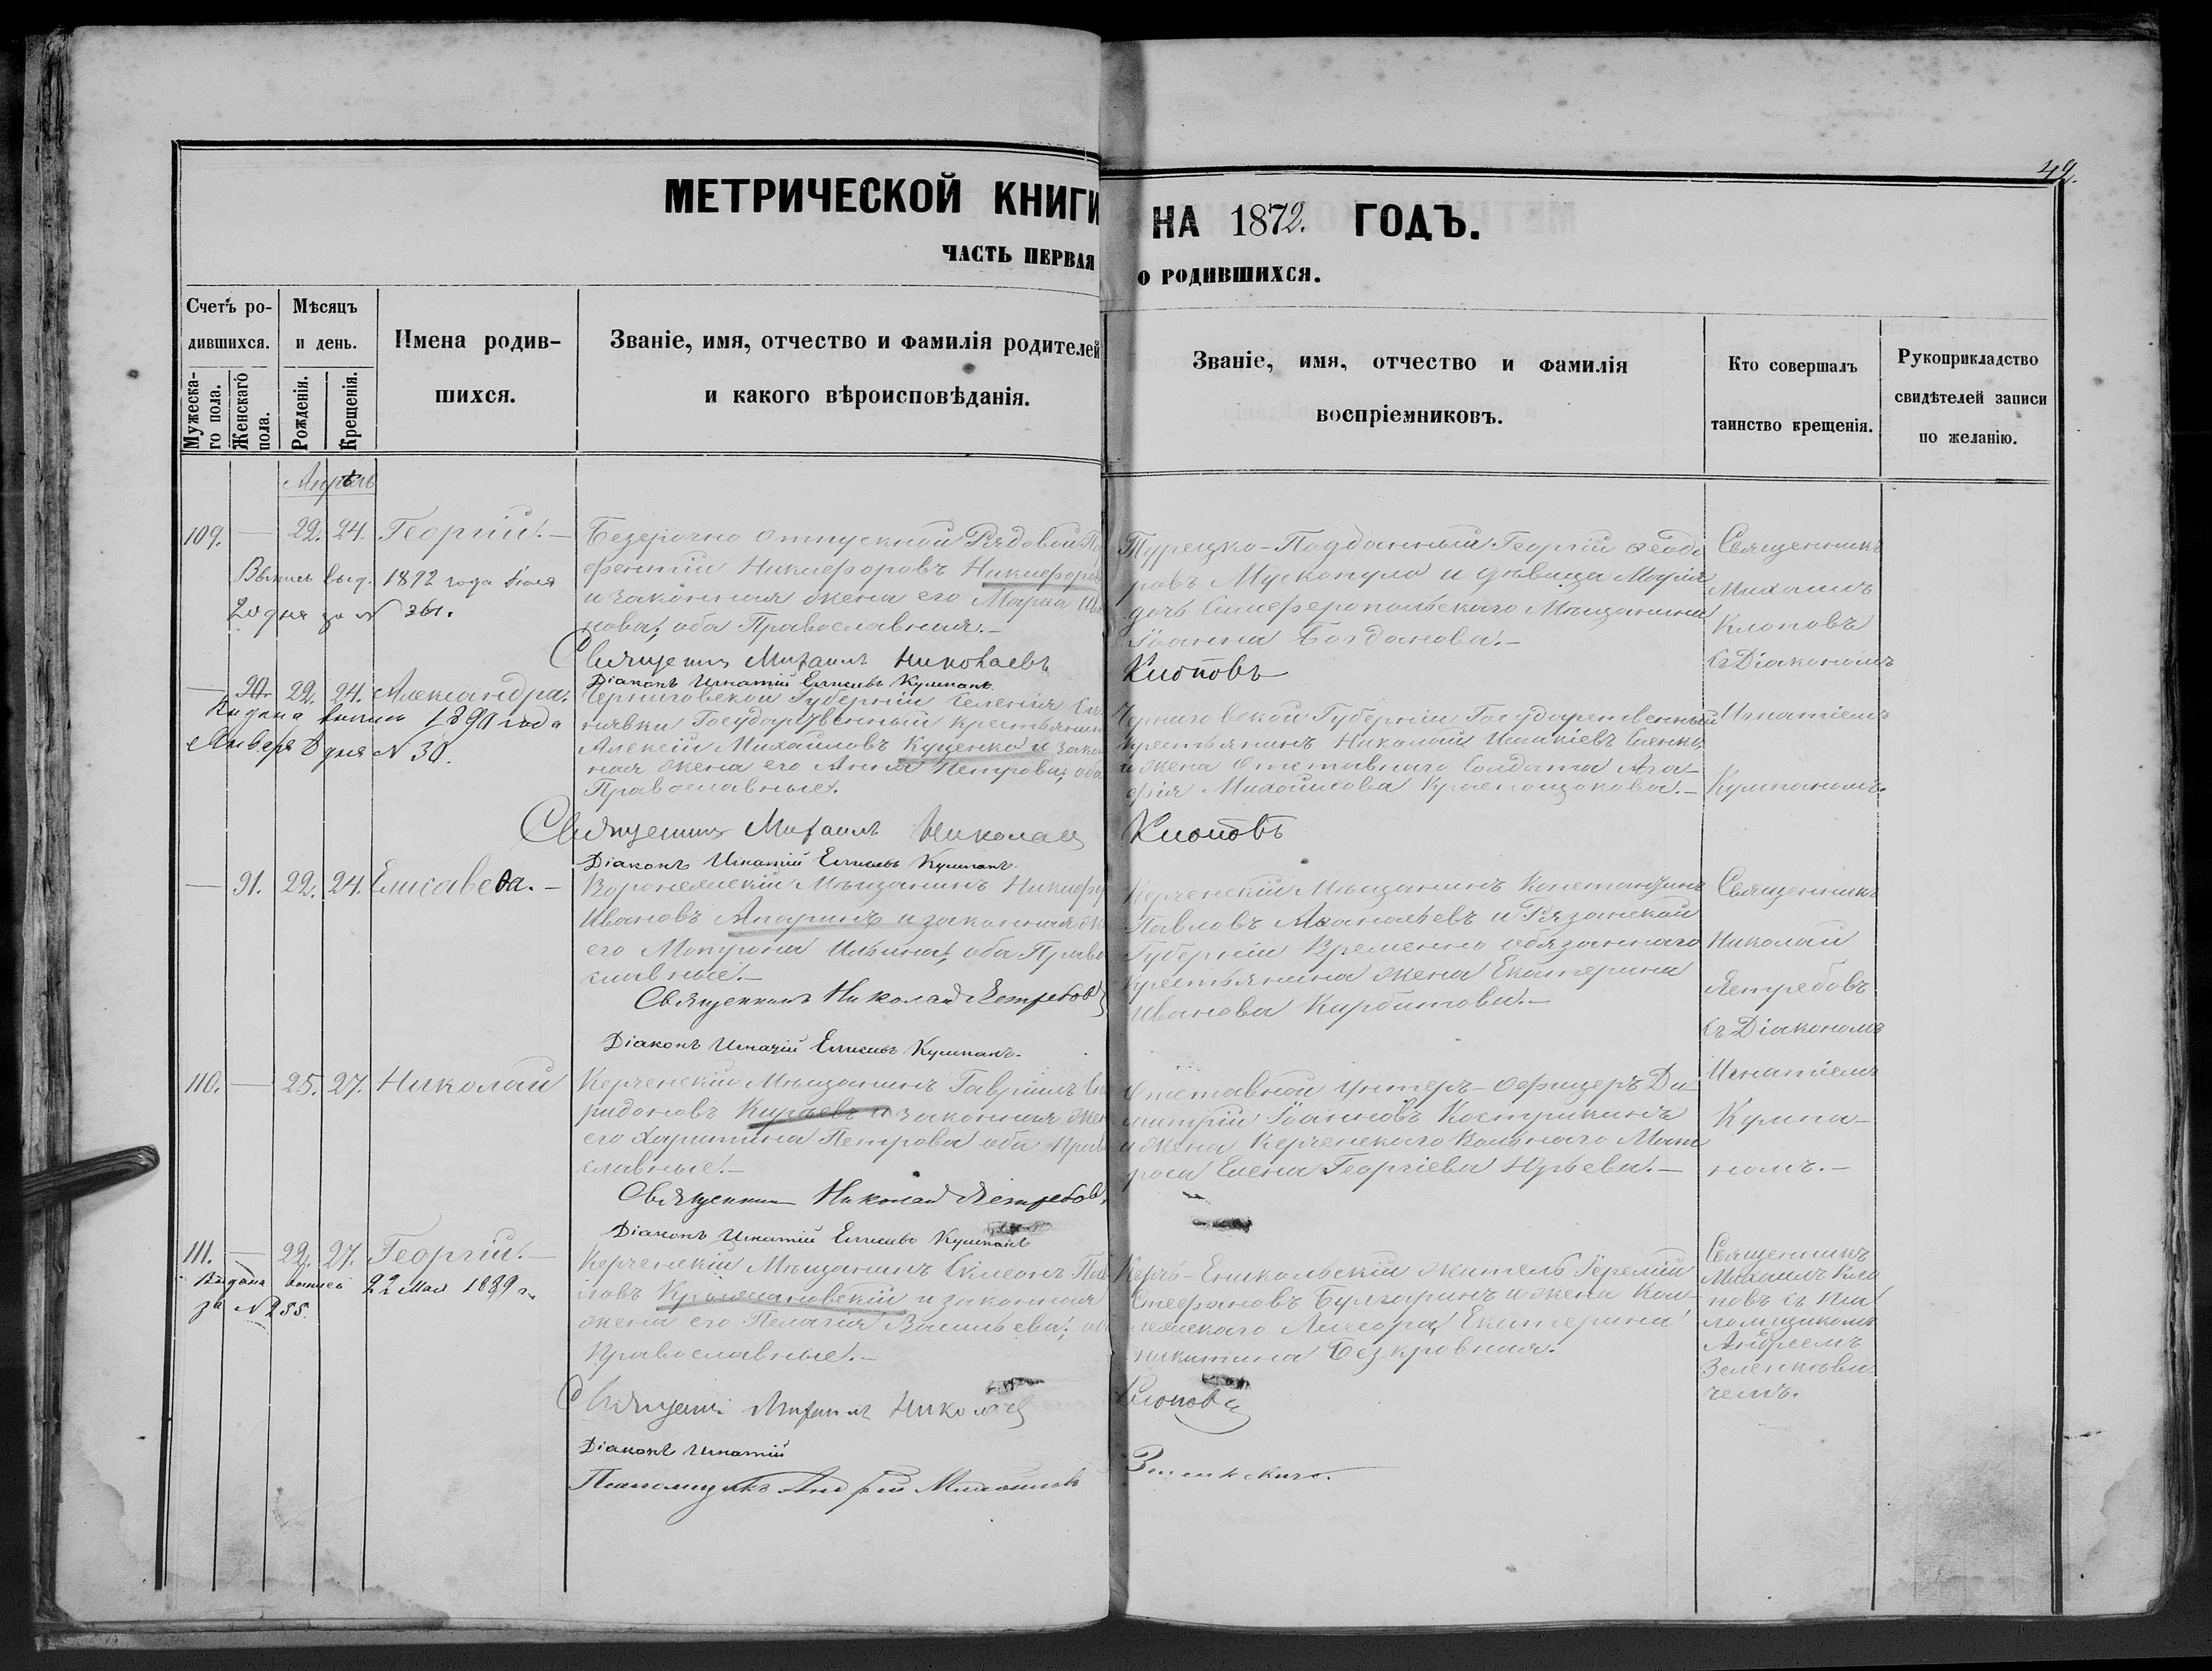 42.
МЕТРИЧЕСКОЙ КНИГИ НА 1872. ГОДЪ.
ЧАСТЬ ПЕРВАЯ О РОДИВШИХСЯ.
Счетъ родившихся.
Мужескаго пола.
Женскаго пола.
Мѣсяцъ и день.
Рожденія.
Крещенія.
Имена родившихся.
Званіе, имя, отчество и фамилія родителей
и какого вѣроисповѣданія.
Званіе, имя, отчество и фамилія
воспріемниковъ.
Кто совершалъ
таинство крещенія.
Рукоприкладство
свидѣтелей записи
по желанію.
Апрѣль
109. — 22. 24. Георгій. —
Выпись выд. 1892 года Іюля
20 дня за №
Безсрочно отпускной Рядовой
фентій Никифоровъ Никифоров
и законная жена его Марѳа
нова, оба Православная. —
Священникъ Михаилъ Николаевъ Клоповъ
Діаконъ Игнатій Елисеевъ Кумпанъ.
Турецко-Подданный Георгій Ѳеодо
ровъ Мускопуло и дѣвица Марія
дочь Симферопольскаго Мѣщанина
Іоанна Богданова. —
Священникъ
Михаилъ
Клоповъ
съ Діакономъ
Игнатіемъ
Кумпаномъ.
— 90. 22. 24. Александра.
Выдана выпись 1890 года
Января 8 дня № 30.
Черниговской Губерніи Селенія
нявки Государственный крестьянин
Алексій Михайловъ Куценко и зако
ная жена его Анна Петрова, оба
Православные.
Священникъ Михаилъ Николаев Клоповъ
Діаконъ Игнатій Елисеевъ Кумпанъ.
Черниговской Губерніи Государственный
крестьянинъ Николай
и жена Отставнаго Солдата Ага
фія Михайлова Краснощокова. —
— 91. 22. 24. Елисавеѳа. —
Воронежскій Мѣщанинъ Никифор
Ивановъ Апаринъ и законная ж
его Матрона Ильина, оба Право
славные. —
Священникъ Николай Ястребовъ
Діаконъ Игнатій Елисеевъ Кумпанъ.
Керченскій Мѣщанинъ Константинъ
Павловъ Аѳанасьевъ и Рязанской
Губерніи Временно обязаннаго
крестьянина жена Екатерина
Иванова Курбатова. —
Священникъ
Николай
Ястребовъ
съ Діакономъ
Игнатіемъ
Кумпа-
номъ. —
110. — 25. 27. Николай
Керченскій Мѣщанинъ Гавріилъ Сп
ридоновъ Кираевъ и законная жен
его Харитина Петрова оба Право
славные. —
Священникъ Николай Ястребовъ
Діаконъ Игнатій Елисеевъ Кумпанъ
Отставной Унтеръ-Офицеръ Ди
митрій Іоанновъ Кострикинъ
и жена Керченскаго Вольнаго Мат
роса Елена Георгіева Юрьева. —
111. — 22. 27. Георгій. —
Выдана выпись 22 Мая 1889 г.
за № 255.
Керченскій Мѣщанинъ Симеонъ
ловъ и законная
жена его Пелагія Васильева, об
Православные. —
Священни Михаилъ Николаев Клопов
Діаконъ Игнатій
Пономарь Андрей Михайловъ
Керчь-Еникольскій житель Іеремій
Стефановъ Булгаринъ и жена Кол
лежскаго Ассесора Екатерина
Никитина Безкровная.
Священникъ
Михаилъ Кло
повъ съ
Андреемъ
Зеленкеви
чемъ.